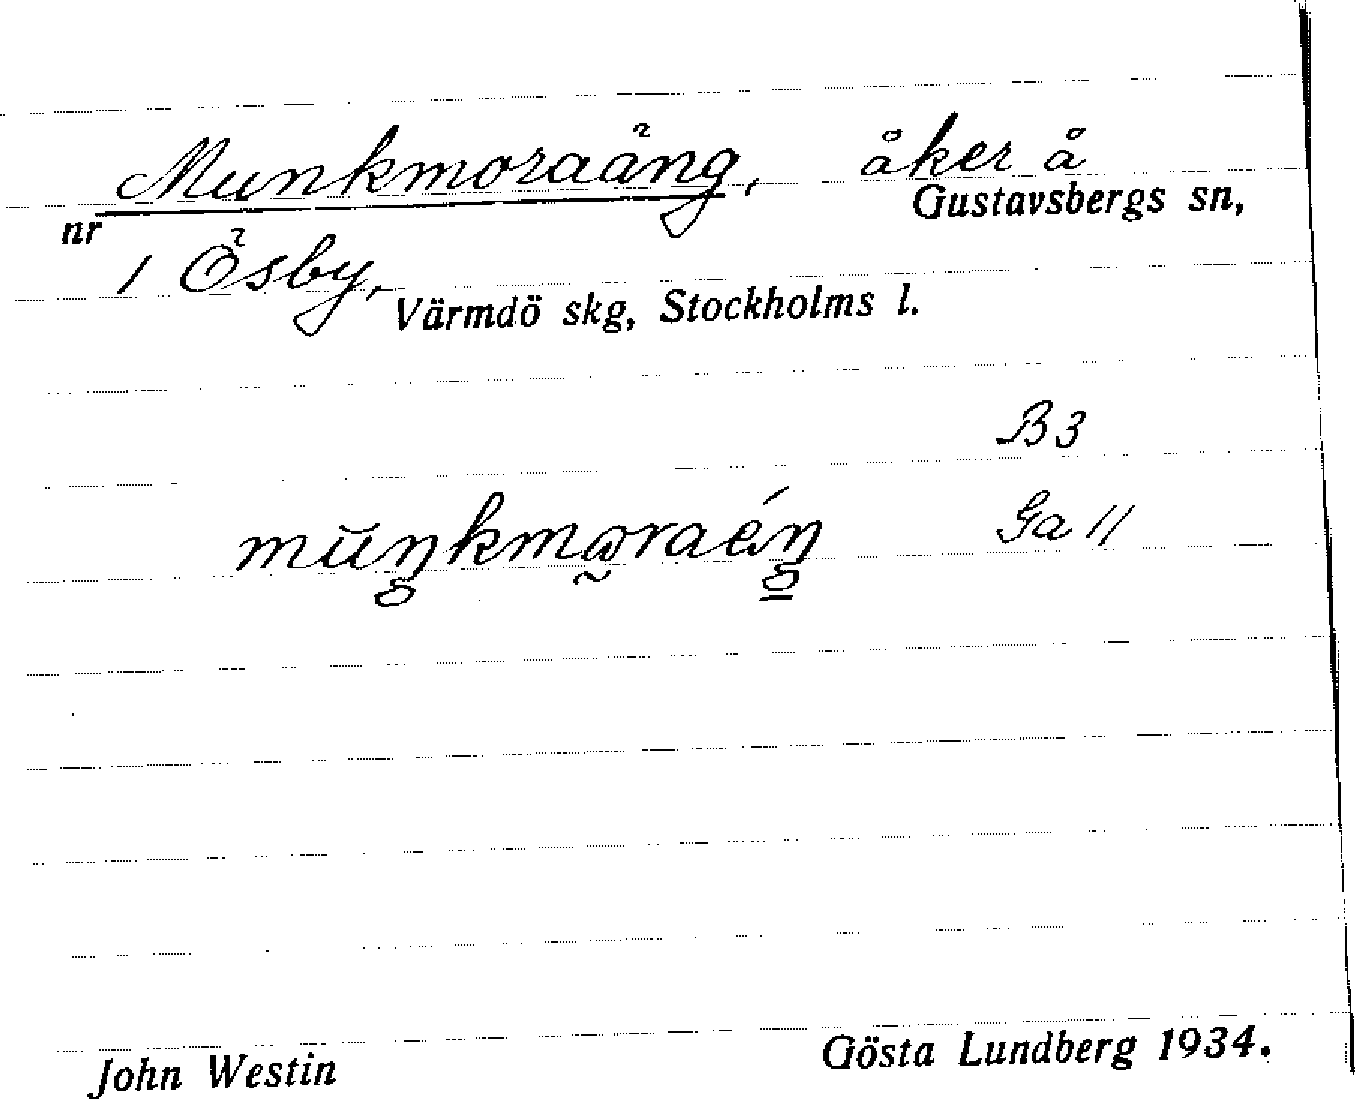 Munkmoraäng, åker å
Gustavsbergs sn,
nr 1 Ösby,
Värmdö skg, Stockholms l.
B3
Ga 11
John Westin
Gösta Lundberg 1934.